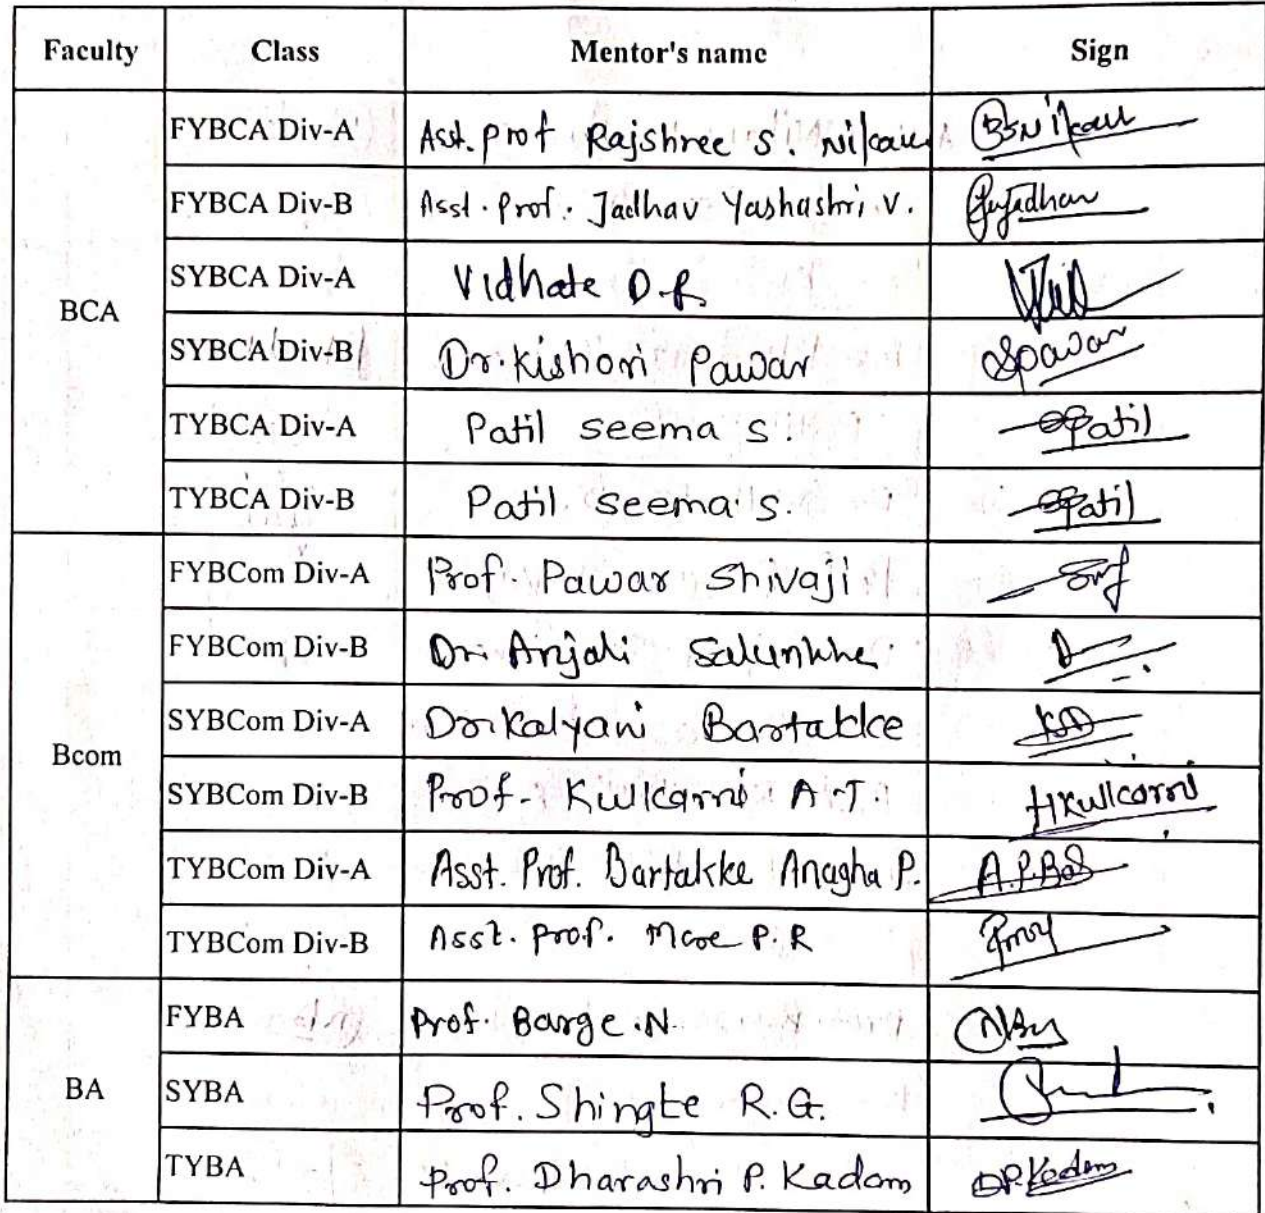 Faculty Class Mentor's name Sign
BCA
FYBCA Div-A Asst. prof Rajshree S. Nikam
FYBCA Div-B Asst. Prof. Jadhav Yashashri V. Jadhav
SYBCA Div-A Vidhate D.R.
SYBCA Div-B Dr. Kishori Pawar Spawar
TYBCA Div-A Patil seema s. SPatil
TYBCA Div-B Patil seema s. SPatil
Bcom
FYBCom Div-A Prof. Pawar Shivaji
FYBCom Div-B Dr. Anjali Salunkhe
SYBCom Div-A Dr. Kalyani Bartakke
SYBCom Div-B Prof. Kulkarni A.J. Kulkarni
TYBCom Div-A Asst. Prof. Bartakke Anagha P. A.P.Bat
TYBCom Div-B Asst. prof. More P.R
BA
FYBA Prof. Barge .N.
SYBA Prof. Shingte R.G.
TYBA Prof. Dharashri P. Kadam DP.Kadam